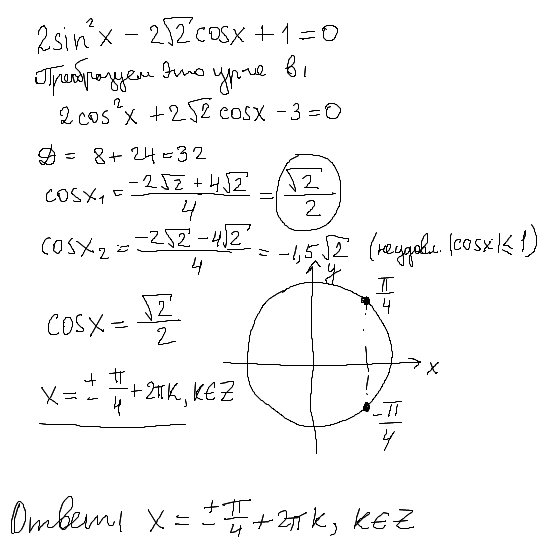 2sin²x − 2√2 cosx + 1 = 0
Преобразуем это ур-е в:
2cos²x + 2√2 cosx − 3 = 0
D = 8 + 24 = 32
cosx₁ = (−2√2 + 4√2)/4 = √2/2
cosx₂ = (−2√2 − 4√2)/4 = −1,5√2 (неудовл. |cosx| ≤ 1)
y
π/4
cosx = √2/2
x
x = ± π/4 + 2πk, k∈Z
−π/4
Ответ: x = ± π/4 + 2πk, k∈Z